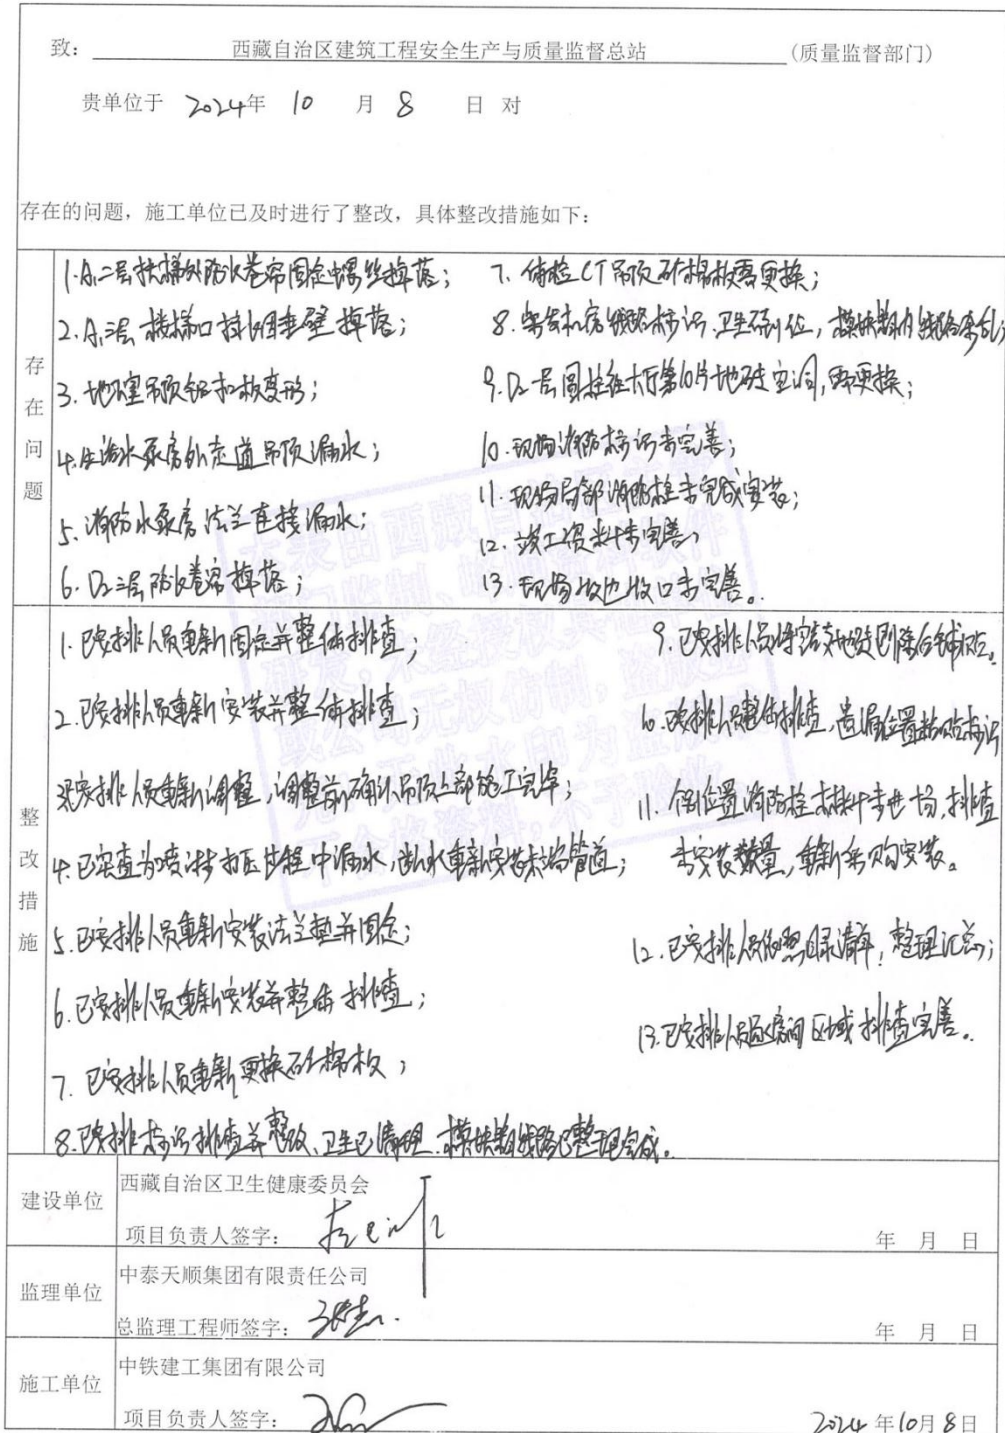 致： 西藏自治区建筑工程安全生产与质量监督总站 (质量监督部门)
贵单位于 2024年 10 月 8 日 对
存在的问题，施工单位已及时进行了整改，具体整改措施如下：
存在问题
1.A1二层扶梯处防火卷帘固定螺丝掉落；
2.A1三层楼梯口挡烟垂壁掉落；
3.地下室吊顶铝扣板变形；
4.生活水泵房外走道吊顶漏水；
5.消防水泵房法兰连接漏水；
6.D2三层防火卷帘掉落；
7.体检CT吊顶矿棉板需更换；
8.弱电机房线路标识、卫生到位，模块箱内线路杂乱；
9.D2一层圆柱往大厅第10片地砖空洞，需更换；
10.现场消防标识未完善；
11.现场局部消防栓未完成安装；
12.竣工资料未完善；
13.现场收边收口未完善。
整改措施
1.已安排人员重新固定并整体排查；
2.已安排人员重新安装并整体排查；
3.已安排人员重新调整，调整前确认吊顶上部施工完毕；
4.已实查为喷淋打压过程中漏水，重新安装末端管道；
5.已安排人员重新安装法兰垫并固定；
6.已安排人员重新安装并整体排查；
7.已安排人员重新更换矿棉板；
8.已安排标识排查并整改、卫生已清理、模块箱线路已整理完成。
9.已安排人员将空洞地砖剔除后铺贴。
10.已安排人员整体排查，遗漏位置粘贴标识
11.个别位置消防栓材料未进场，排查
未安装数量，重新采购安装。
12.已安排人员依照目录清单，整理汇总；
13.已安排人员逐房间区域排查完善。
建设单位
西藏自治区卫生健康委员会
项目负责人签字：
年 月 日
监理单位
中泰天顺集团有限责任公司
总监理工程师签字：
年 月 日
施工单位
中铁建工集团有限公司
项目负责人签字：
2024年10月8日